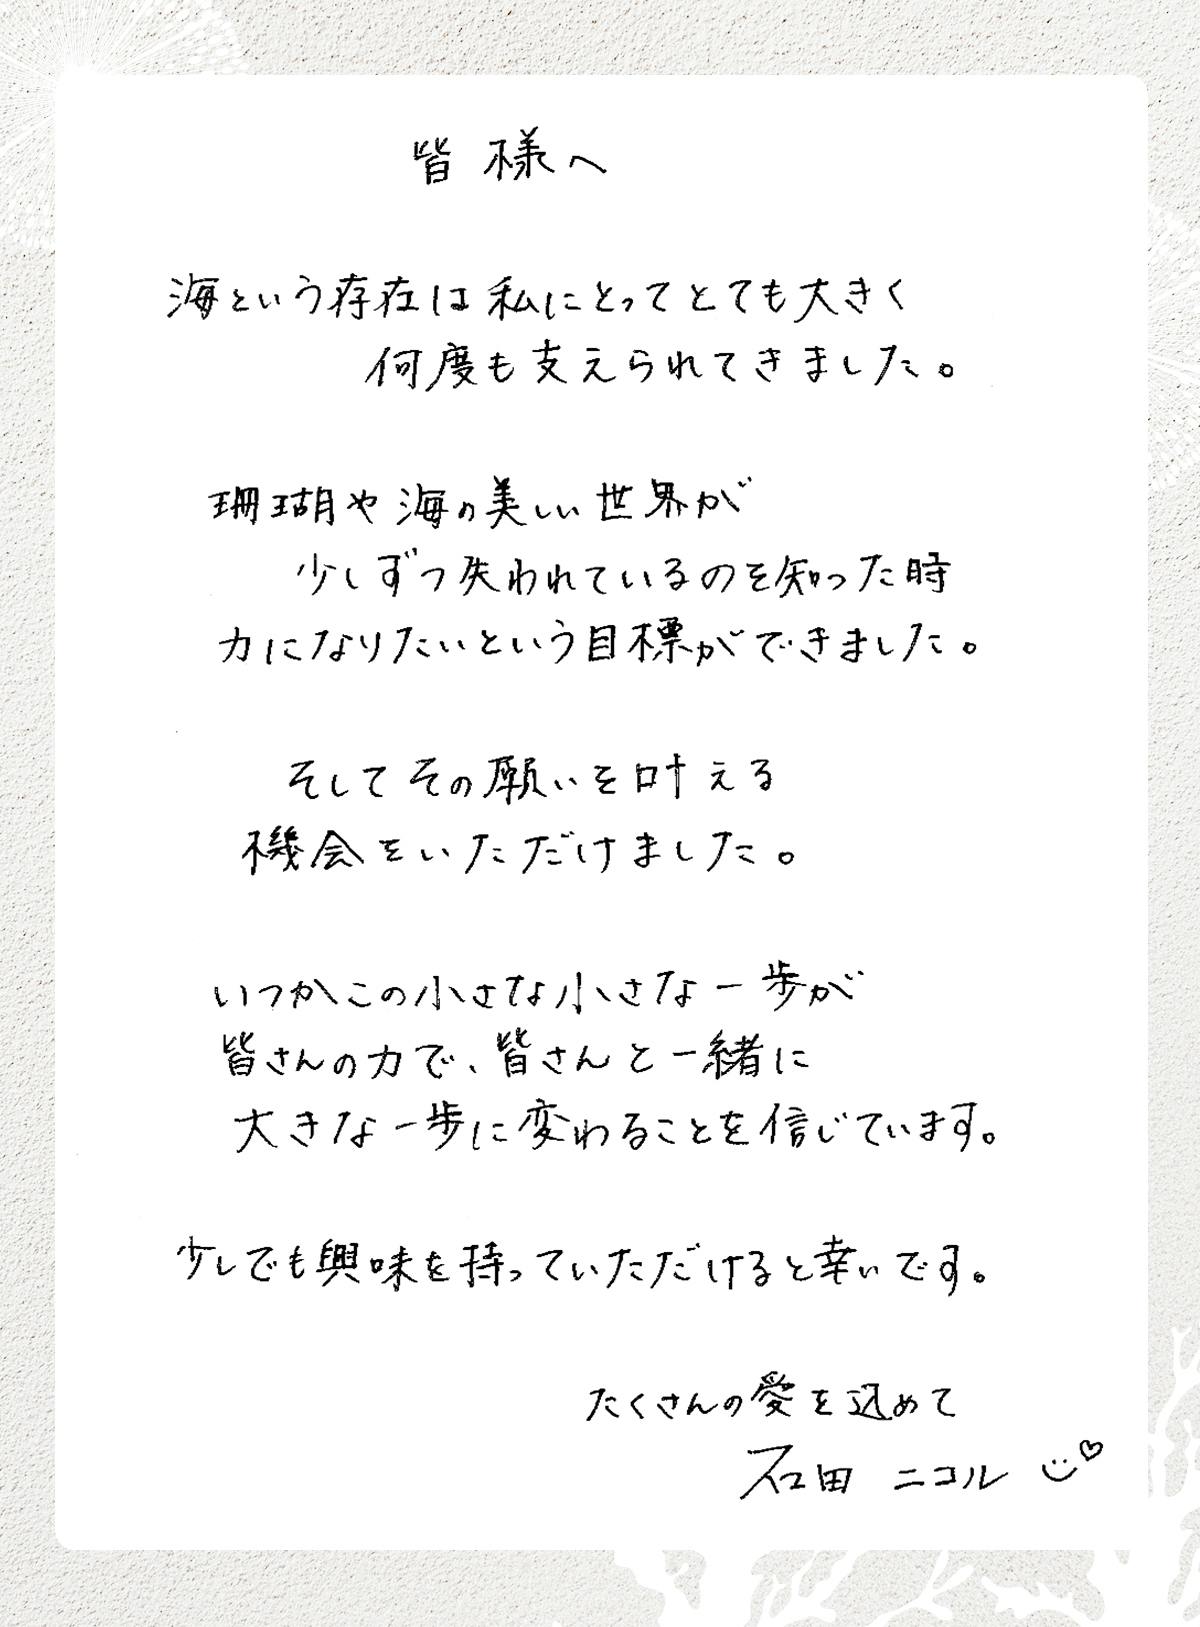 皆様へ
海という存在は私にとってとても大きく
何度も支えられてきました。
珊瑚や海の美しい世界が
少しずつ失われているのを知った時
力になりたいという目標ができました。
そしてその願いを叶える
機会をいただけました。
いつかこの小さな小さな一歩が
皆さんの力で、皆さんと一緒に
大きな一歩に変わることを信じています。
少しでも興味を持っていただけると幸いです。
たくさんの愛を込めて
石田 ニコル